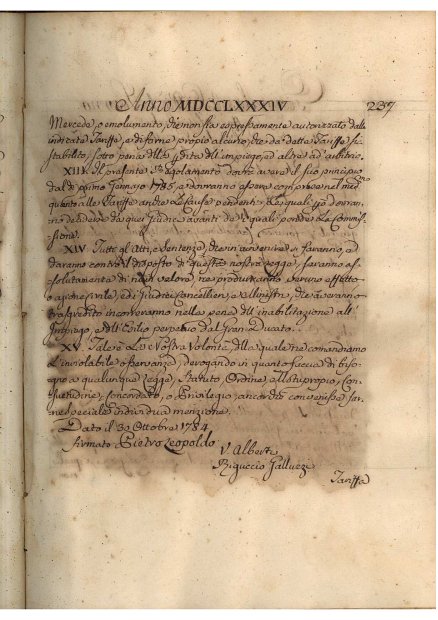 Anno MDCCLXXXIV 237
Mercede, o emolumento, che non sia espressamente autorizzato dalla
indicata Tariffa, e di forne propio alcuno, che da detta Tariffa sia
stabilito, sotto pena della perdita dell'impiego, ed altre ad arbitrio.
XIII. Il presente Regolamento dovrà avere il suo principio
dal dì primo Gennajo 1785, e dovranno essere comprese nel med.mo
quanto alle Tariffe anche le Cause pendenti, le quali
no decidere da quei Giudici avanti de' quali pende la Commis-
sione.
XIV Tutti gl'Atti, e Sentenze, che in avvenire si faranno, o
daranno contro il disposto di questa nostra Legge saranno as-
solutamente di niun valore, nè produrranno veruno effetto
o azione civile, ed i Giudici Cancellieri, e Ministri, che averanno
trasgredito incorreranno nella pena dell'inabilitazione all'
Impiego, e dell'Esilio perpetuo dal Gran Ducato.
XV Tale è la Nostra Volontà, della quale ne comandiamo
l'inviolabile osservanza, derogando in quanto faccia di biso-
gno a qualunque Legge, Statuto, Ordine, Motuproprio, Con-
suetudine, Concordato, o Privilegio, ancorchè convenisse far-
ne speciale individua menzione.
Dato il 30 Ottobre 1784
Firmato Pietro Leopoldo
V. Alberti
Riguccio Galluzzi
Tariffa